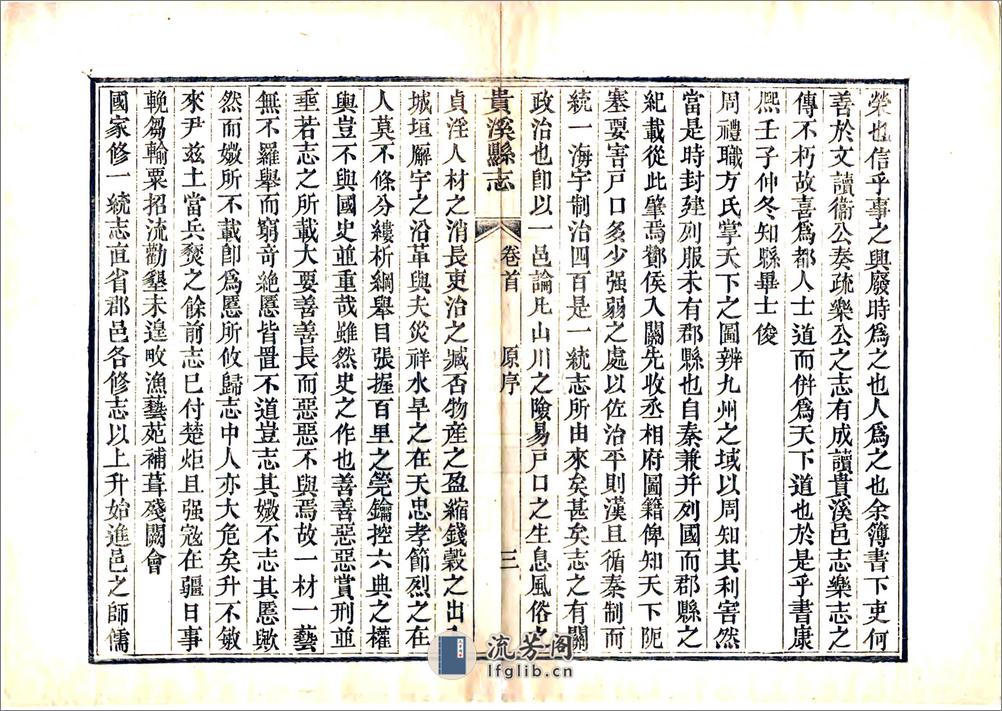 榮也信乎事之興廢時爲之也人爲之也余簿書下吏何
善於文讀衞公奏疏樂公之志有成讀貴溪邑志樂志之
傳不朽故喜爲都人士道而併爲天下道也於是乎書康
熙壬子仲冬知縣畢士俊
周禮職方氏掌天下之圖辨九州之域以周知其利害然
當是時封建列服未有郡縣也自秦兼并列國而郡縣之
紀載從此肇焉酇侯入關先收丞相府圖籍俾知天下阨
塞要害戸口多少强弱之處以佐治平則漢且循秦制而
統一海宇制治四百是一統志所由來矣甚矣志之有關
政治也卽以一邑論凡山川之險易戸口之生息風俗之
貴溪縣志
卷首
原序
三
貞淫人材之消長吏治之臧否物産之盈縮錢穀之出
城垣廨宇之沿革與夫災祥水旱之在天忠孝節烈之在
人莫不條分縷析綱舉目張握百里之筦鑰控六典之權
輿豈不與國史並重哉雖然史之作也善善惡惡賞刑並
垂若志之所載大要善善長而惡惡不與焉故一材一藝
無不羅舉而窮奇絶慝皆置不道豈志其媺不志其慝歟
然而媺所不載卽爲慝所攸歸志中人亦大危矣升不敏
來尹兹土當兵燹之餘前志已付楚炬且强寇在疆日事
輓芻輸粟招流勸墾未遑畋漁藝苑補葺殘闕會
國家修一統志直省郡邑各修志以上升始進邑之師儒
流芳阁
lfglib.cn